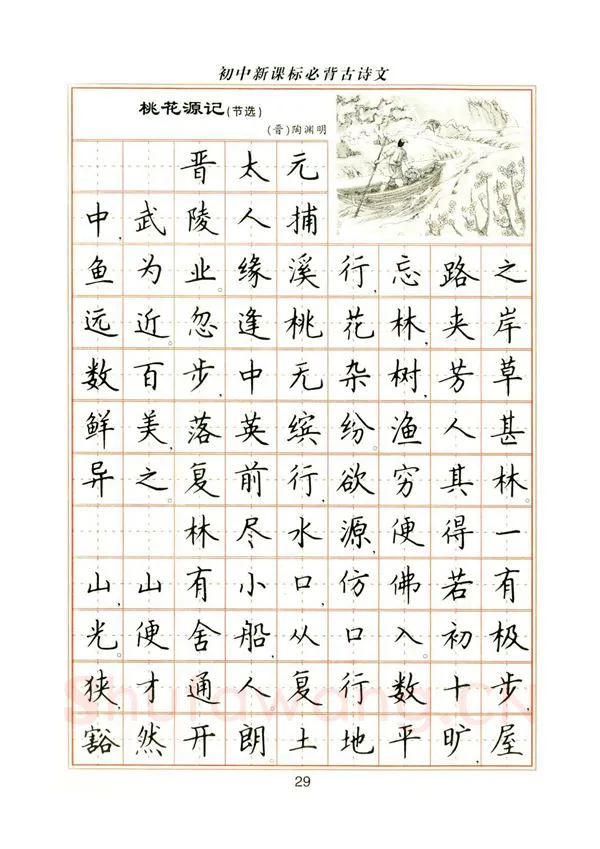 初中新课标必背古诗文
桃花源记(节选)
(晋)陶渊明
晋太元
中,武陵人捕
鱼为业。缘溪行,忘路之
远近。忽逢桃花林,夹岸
数百步,中无杂树,芳草
鲜美,落英缤纷。渔人甚
异之。复前行,欲穷其林。
林尽水源,便得一
山,山有小口,仿佛若有
光。便舍船,从口入。初极
狭,才通人。复行数十步,
豁然开朗。土地平旷,屋
29
Shufawang.CN